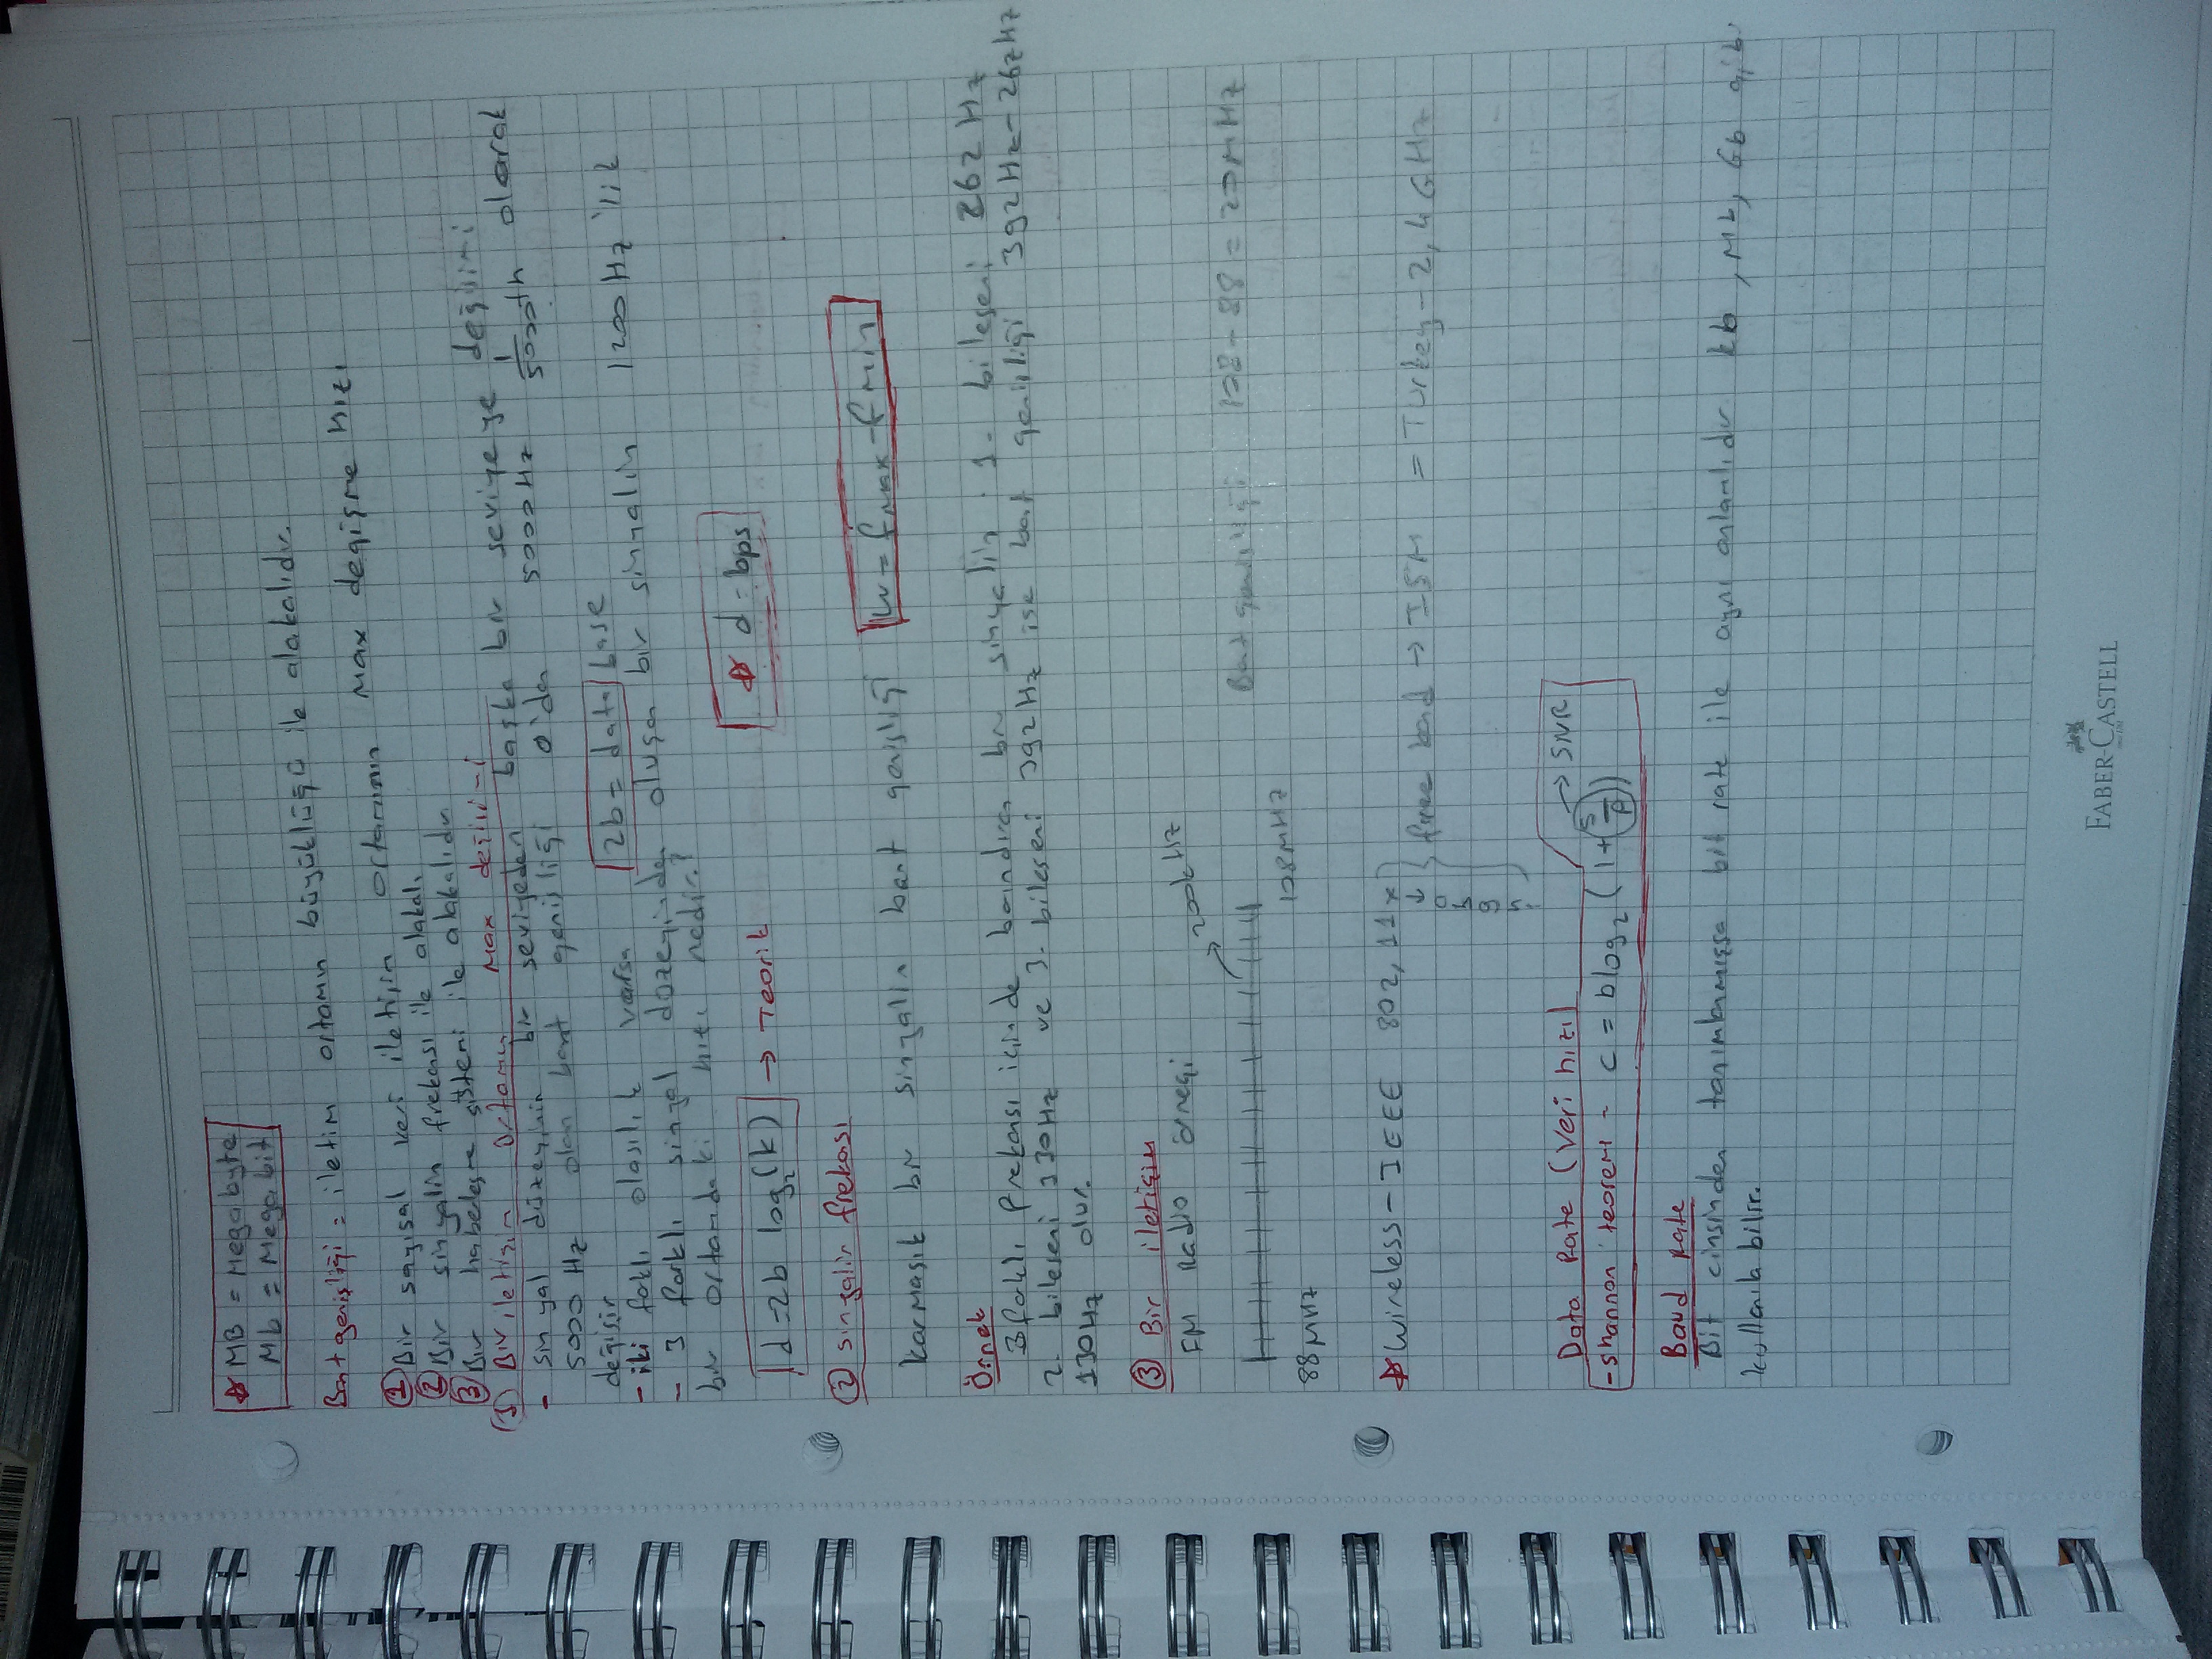 ☆ MB = Megabyte
Mb = Megabit
Bant genişliği = iletim ortamın büyüklüğü ile alakalıdır.
① Bir sayısal veri iletişin ortamının max değişme hızı
② Bir sinyalin frekası ile alakalı
③ Bir habeleşme sistemi ile alakalıdır
① Bir iletişin ortamın max değişimi
- sinyal düzeyinin bir seviyeden başka bir seviyeye değişimi
5000 Hz olan bant genişliği 0'dan 5000 Hz 1/5000th olarak
değişir
- iki faklı olasılık varsa 2b = data base
- 3 farklı sinyal düzeyinden oluşan bir sinyalin 1200 Hz'lik
bir ortamdaki hızı nedir?
☆ d = bps
d = 2b log₂(k) → Teorik
② sinyalin frekası
Karmaşık bir sinyalin bant genişliği w = fmax - fmin
Örnek
3 faklı frekansı içinde barındıran bir sinyalin 1. bileşeni 262 Hz
2. bileseni 330Hz ve 3. bileseni 392Hz ise bant genişliği 392Hz - 262Hz
130Hz olur.
③ Bir iletişim
FM Radio örneği
200kHz
Bant genişliği 108 - 88 = 20MHz
108MHz
88MHz
☆ Wireless - IEEE 802,11x
free band → ISM = Turkey - 2,4 GHz
↓
a
b
g
n
Data Rate (Veri hızı)
→ SNR
- Shannon teoremi - C = b log₂ (1 + (S/P))
Baud Rate
Bit cinsinden tanımlanmışsa bit rate ile aynı anlamlıdır kb, Mb, Gb gibi
kullanıla bilir.
FABER-CASTELL
since 1761